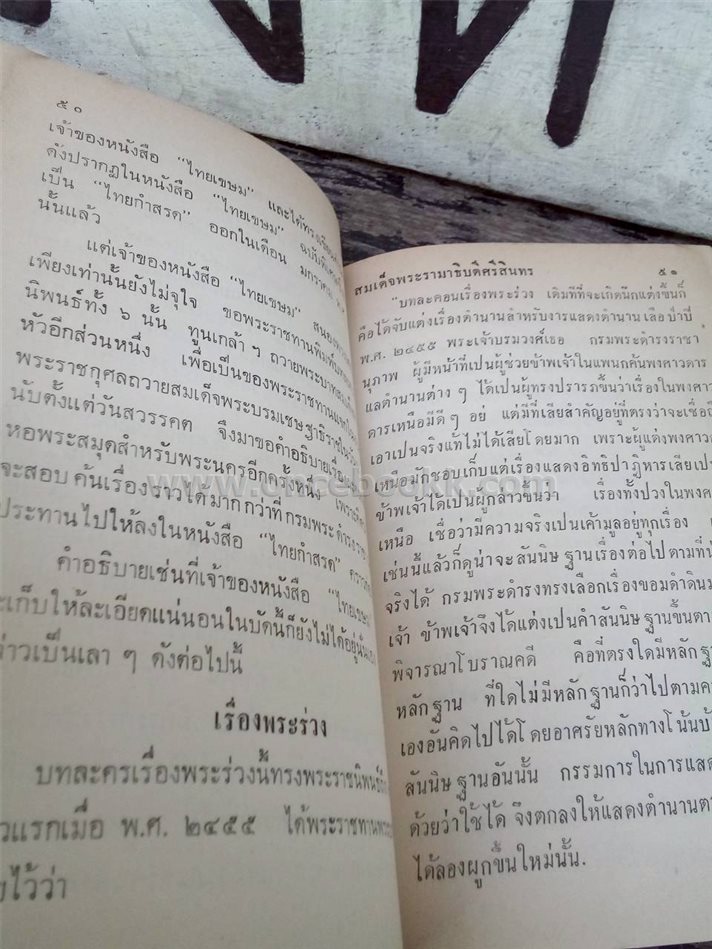 ๕๐
เจ้าของหนังสือ "ไทยเขษม" และได้ทรงเรียบ
ดังปรากฏในหนังสือ "ไทยเขษม" ฉบับพิเศษ
เป็น "ไทยกำสรด" ออกในเดือน มกราคม
นั้นแล้ว
แต่เจ้าของหนังสือ "ไทยเขษม" สนอง
เพียงเท่านั้นยังไม่จุใจ ขอพระราชทานพิมพ์
นิพนธ์ทั้ง ๖ นั้น ทูนเกล้า ๆ ถวายพระบาท
หัวอีกส่วนหนึ่ง เพื่อเป็นของพระราชทานแจก
พระราชกุศลถวายสมเด็จพระบรมเชษฐาธิราช
นับตั้งแต่วันสวรรคต จึงมาขอคำอธิบายเรื่อง
หอพระสมุดสำหรับพระนครอีกครั้งหนึ่ง เพราะ
จะสอบ ค้นเรื่องราวได้ มาก กว่าที่ กรมพระ ดำรง ราช
ประทาน ไปให้ลงในหนังสือ "ไทยกำสรด" คราว
คำอธิบายเช่นที่เจ้าของหนังสือ "ไทยเขษม
ะเก็บให้ละเอียดแน่นอนในบัดนี้ก็ยังไม่ได้อยู่นั่น
ล่าวเป็นเลา ๆ ดังต่อไปนี้
เรื่องพระร่วง
บทละครเรื่องพระร่วงนี้ทรงพระราชนิพนธ์
วแรกเมื่อ พ.ศ. ๒๔๕๕ ได้พระราชทานพระ
ยไว้ว่า
สมเด็จพระรามาธิบดีศรีสินทร ๕๑
"บทละคอนเรื่องพระร่วง เดิมทีที่จะเกิดนึกแต่งขึ้นก็
คือได้จับแต่งเรื่องตำนานสำหรับงารแสดงตำนาน เสือ ป่าปี
พ.ศ. ๒๔๕๕ พระเจ้าบรมวงศ์เธอ กรมพระดำรงราชา
นุภาพ ผู้มีหน้าที่เป็นผู้ช่วยข้าพเจ้าในแพนกค้นพงศาวดาร
แลตำนานต่าง ๆ ได้เป็นผู้ทรงปรารภขึ้นว่าเรื่องในพงศาว
ดารเหนือมีดี ๆ อยู่ แต่มีที่เสียสำคัญอยู่ที่ตรงว่าจะเชื่อถือ
เอาเป็นจริงแท้ไม่ได้เสียโดยมาก เพราะผู้แต่งพงศาวด
เหนือมักชอบเก็บแต่เรื่องแสดงอิทธิปาฏิหารเสียเป็น
ข้าพเจ้าได้เป็นผู้กล่าวขึ้นว่า เรื่องทั้งปวงในพงศ
เหนือ เชื่อว่ามีความจริงเป็นเค้ามูลอยู่ทุกเรื่อง
เช่นนี้แล้วก็ดูน่าจะสันนิษฐานเรื่องต่อไปตามที่น่
จริงได้ กรมพระดำรงทรงเลือกเรื่องขอมดำดินม
เจ้า ข้าพเจ้าจึงได้แต่งเป็นคำสันนิษฐานขึ้นตา
พิจารณาโบราณคดี คือที่ตรงใดมีหลักฐ
หลักฐาน ที่ใดไม่มีหลักฐานก็ว่าไปตามค
เองอันคิดไปได้โดยอาศรัยหลักทางโน้นบ้
สันนิษฐานอันนั้น กรรมการในการแสด
ด้วยว่าใช้ได้ จึงตกลงให้แสดงตำนานตา
ได้ลองผูกขึ้นใหม่นั้น.